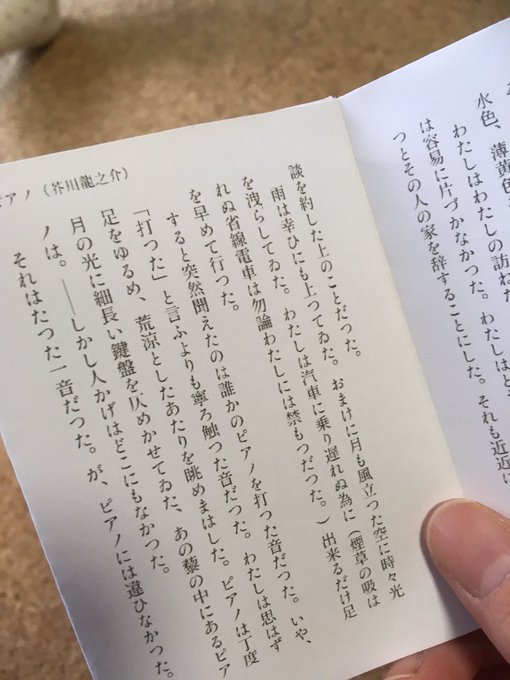 水色、薄黄色
わたしはわたしの訪ねた
は容易に片づかなかった。わたしはと
つとその人の家を辞することにした。それも近近に
談を約した上のことだった。
雨は幸ひにも上ってゐた。おまけに月も風立った空に時々光
を洩らしてゐた。わたしは汽車に乗り遅れぬ為に(煙草の吸は
れぬ省線電車は勿論わたしには禁もつだった。)出来るだけ足
を早めて行った。
すると突然聞えたのは誰かのピアノを打った音だった。いや、
「打った」と言ふよりも寧ろ触った音だった。わたしは思はず
足をゆるめ、荒涼としたあたりを眺めまはした。ピアノは丁度
月の光に細長い鍵盤を仄めかせてゐた、あの藜の中にあるピア
ノは。――しかし人かげはどこにもなかった。
それはたった一音だった。が、ピアノには違ひなかった。
ピアノ(芥川龍之介)